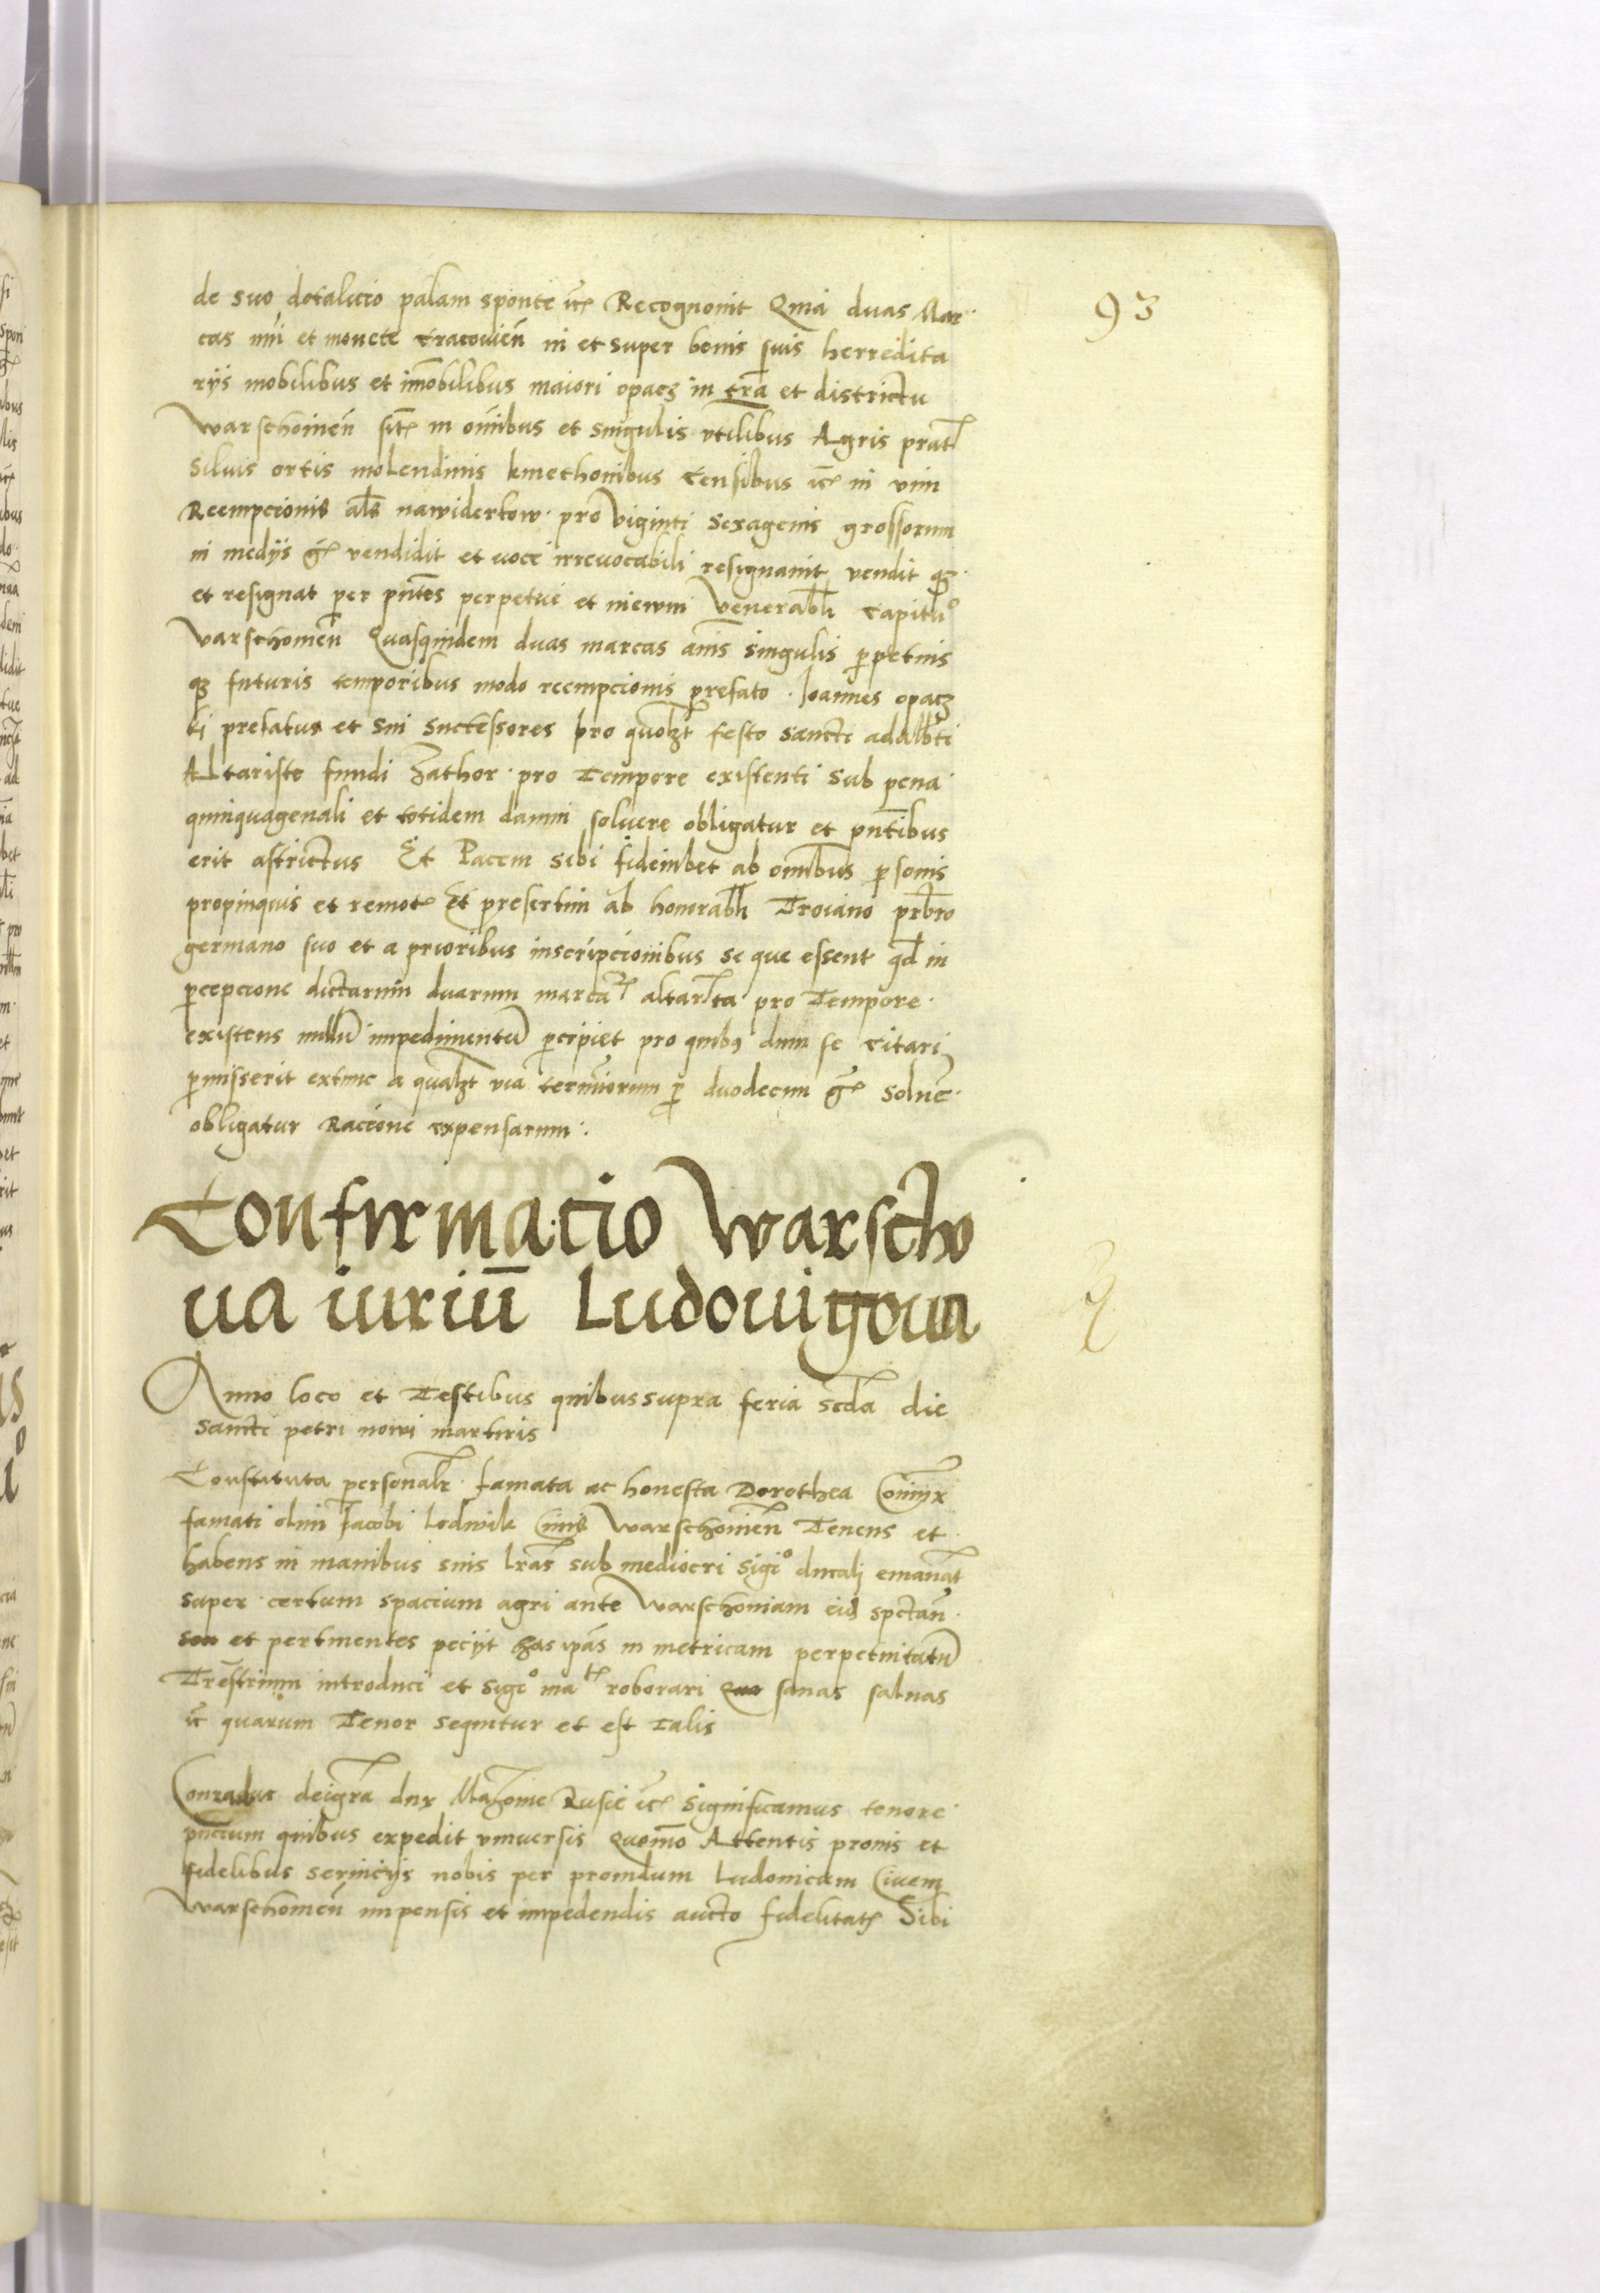 93
de suo dotalicio palam sponte etc Recognovit Quia duas Mar
cas nūi et monete Cracovieñ in et super bonis suis herredita
rijs mobilibus et im̄obilibus maiori opacz in t̄ra et districtu
Warschovieñ sit̄ in om̄ibus et singulis vtilibus Agris prat̄
Siluis ortis molendinis kmethonibus Censibus etc in vim
Reempcionis al̄s nawiderkow pro viginti sexagenis grossorum
in medijs g̃ vendidit et voce irrevocabili resignavit vendit qz
et resignat per pn̄tes perpetue et in ewm Venerabli Capitlo
Warschovieñ Quasquidem duas marcas an̄is singulis perpetuis
qz futuris temporibus modo reempcionis prefato Joannes opacz
ki prefatus et sui successores pro quolzt festo sancti adalb̄ti
Altariste fundi Zathor pro Tempore existenti sub pena
quinquagenali et totidem damni soluere obligatur et pn̄tibus
erit astrictus Et Pacem sibi fideiubet ab omībus psonis
propinquis et remot̄ Et presertim ab honorabli Troiano prb̄ro
germano suo et a prioribus inscripcionibus se que essent qd̄ in
pcepcione dictarum duarum marcar̄ altarīsta pro Tempore
existens nullū impedimentū pcipiet pro quibus dum se citari
pmisserit extunc a qualzt via terminorum p duodecim g̃ Soluē
obligatur Racione expensarum
Confirmacio Warscho
ua iuriū Ludouigoua
Anno loco et Testibus quibussupra feria scd̄a die
sancti petri nowi martiris
Constituta personalr famata ac honesta Dorothea Coniunx
famati olim Jacobi Lodwik Civis Warschovieñ Tenens et
habens in manibus suis lr̄as sub mediocri Sigio ducali emanat̄
super certum spacium agri ante Warschoviam eid spectañ
seu et pertinentes peciit has ip̄as in metricam perpetuitatū
Tr̄estrium introduci et sigio roborari sanas saluas
etc quarum Tenor sequitur et est Talis
Conradus dei gr̄a dux Mazovie Rusie etc Significamus tenore
pn̄cium quibus expedit vniuersis Quomō Attentis pronis et
fidelibus seruicijs nobis per prouidum Ludouicum Ciuem
Warschovieñ impensis et impedendis aucto fidelitat̄ Sibi